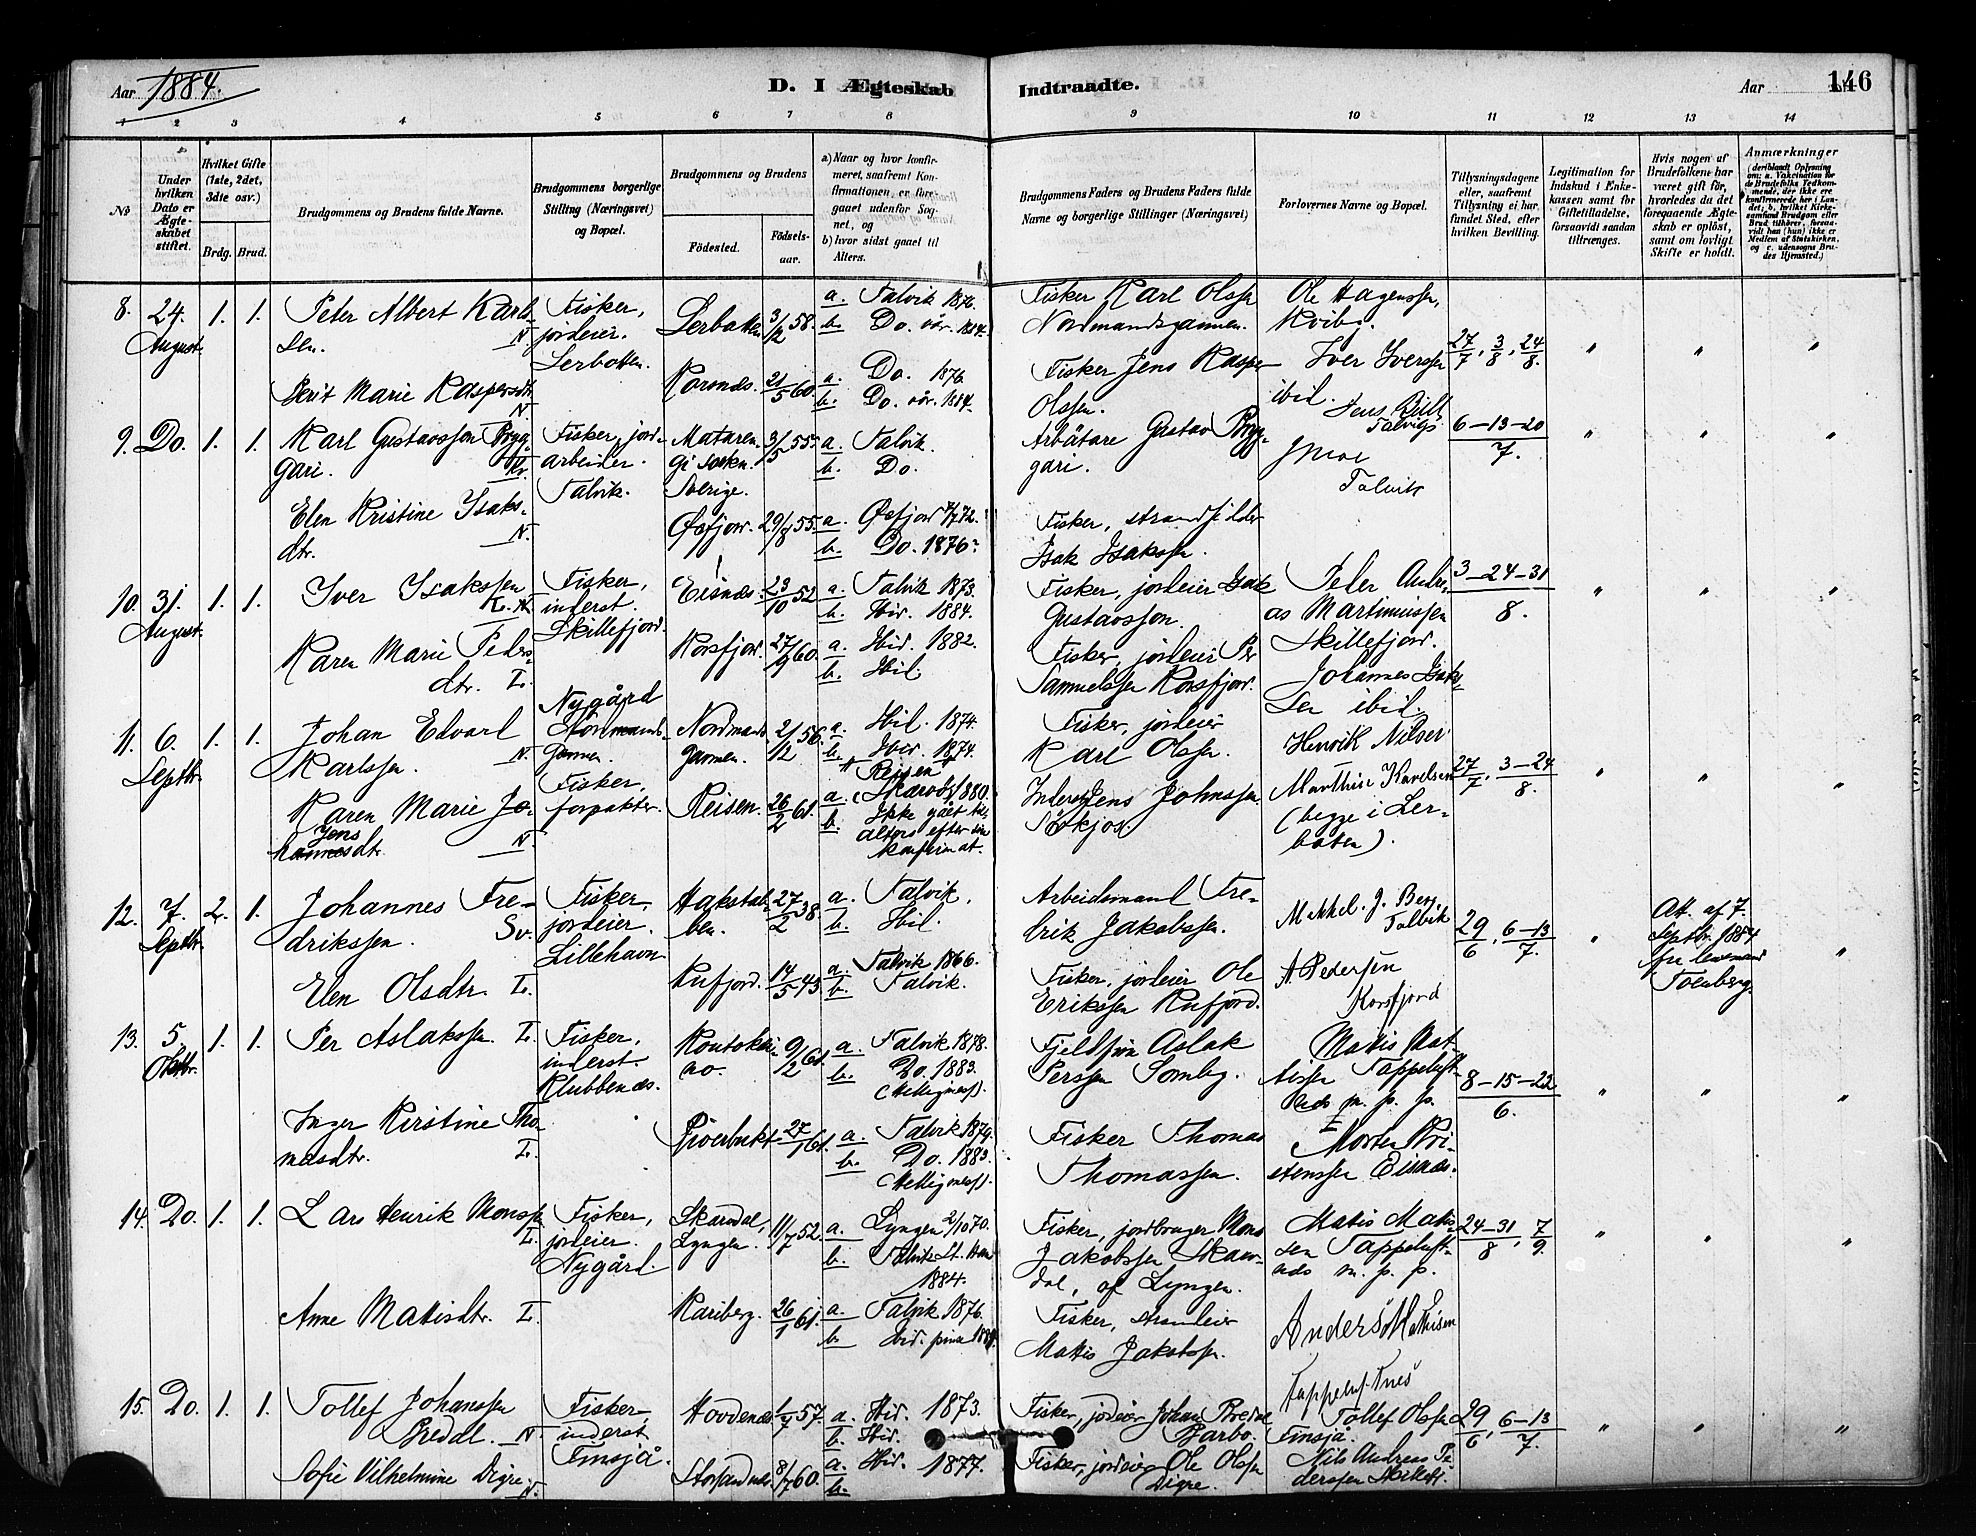 Aar 1884. D. I Ægteskab Indtraadte. Aar 146
1 2 3 4 5 6 7 8 9 10 11 12 13 14
No
Under hvilken Dato er Ægteskabet stiftet.
Hvilket Gifte (1ste, 2det, 3die osv.)
Brdg. Brud.
Brudgommens og Brudens fulde Navne.
Brudgommens borgerlige Stilling (Næringsvei) og Bopæl.
Brudgommens og Brudens
Födested. Födselsaar.
a) Naar og hvor konfirmeret, saafremt Konfirmationen er foregaaet udenfor Sognet, og
b) hvor sidst gaaet til Alters.
Brudgommens Faders og Brudens Faders fulde Navne og borgerlige Stillinger (Næringsvei)
Forlovernes Navne og Bopæl.
Tillysningsdagene eller, saafremt Tillysning ei har fundet Sted, efter hvilken Bevilling.
Legitimation for Indskud i Enkekassen samt for Giftetilladelse, forsaavidt saadan tiltrænges.
Hvis nogen af Brudefolkene har været gift för, hvorledes da det foregaaende Ægteskab er oplöst, samt om lovligt Skifte er holdt.
Anmærkninger
8. 24. August 1. 1. Peter Albert Karlssen. N.
Fisker, jordeier. Lerbotten.
Lerbotten 3/12 58. a. Talvik 1876. b. Do. vår. 1884.
Fisker Karl Olssen Nordmandsgammen.
Ole Hagenssen, Kviby.
27/7, 3/8, 24/8. " " "
Berit Marie Kaspersdtr. N
Korsnæs. 21/5 60. a. Do. 1876. b. Do. vår. 1884.
Fisker Jens Kasper Olssen.
Iver Iverssen ibid.
9. Do. 1. 1. Karl Gustavssen Bryggari. Kv.
Fisker, jordarbeider. Talvik.
Matarengi sokn. Sverige. 3/5 55. a. Talvik. b. Do.
Arbätare Gustav Bryggari.
Talvik
6-13-20/7. " " "
Elen Kristine Isaksdtr. N.
Öxfjor. 29/8 55. a. Öxfjor 7/7 72. b. Do. 1876.
Fisker, strandsidder Isak Isakssen.
10. 31. August. 1. 1. Iver Isakssen L.N.
Fisker, inderst. Skillefjord.
Eisnæs. 23/10 52 a. Talvik 1873. b. Ibid. 1884.
Fisker, jordeier Isak Gustavssen.
Peter Andreas Martinussen Skillefjord.
3-24-31/8. " " "
Karen Marie Pedersdtr. L.
Korsfjor. 27/9 60. a. Ibid. 1882. b. Ibid
Fisker, jordeier Per Samuelssen Korsfjor.
Johannes Isaksen ibid.
11. 6. Septbr. 1. 1. Johan Edvard Karlssen. N.
Nygård Nordmandsgammen. Fisker, forpakter.
Nordmandsgammen. 2/12 56. a. Ibid. 1874. b. Ibid. 1874.
Fisker, jordeier Karl Olssen.
Henrik Nilsen
27/7, 3-24/8. " " "
Karen Marie Johannesdtr. Jens N.
Reisen. 26/2 61. a. Reisen Skjærvö 1880. b. Ikke gået til alters efter sin konfirmat.
Inderst Jens Johnssen Sörkjos.
Marthin Karelsen (begge i Lerboten).
12. 7. Septbr. 2. 1. Johannes Fredrikssen. Sv.
Fisker, jordeier. Lillehavn
Hakstabben. 27/2 38. a. Talvik. b. Ibid.
Arbeidsmand Fredrik Jakobssen.
Mikkel. J. Berg. Talvik
29/6, 6-13/7. " Att. af 7. Septbr. 1884 fra lensmand "
Elen Olsdtr. L.
Rufjord. 14/5 43 a. Talvik 1866. b. Talvik.
Fisker, jordeier Ole Erikssen Rufjord.
A. Pedersen Korsfjord
13. 5. Oktbr. 1. 1. Per Aslakssen. L.
Fisker, inderst. Klubbenæs.
Koutokeino. 9/2 61. a. Talvik 1878. b. Do. 1883.
Fjeldfin Aslak Perssen Somby.
Matis Matissen Tappeluftnæs m. p. p.
8-15-22/6. " " "
Inger Kirstine Thomasdtr. L.
27/1 61. a. Talvik 1879. b. Do. 1883.
Fisker Thomas Thomassen.
Morten Kristenssen Eisnæs.
14. Do. 1. 1. Lars Henrik Monssen L.
Fisker, jordeier. Nygård.
Skardal, Lyngen. 11/7 52. a. Lyngen 2/10 70. b. Talvik 1884.
Fisker, jordbruger Mons Jakobssen Skardal, af Lyngen.
Matis Matissen Tappeluftnæs m. p. p.
24-31/8, 7/9. " " "
Anne Matisdtr. L.
Kariberg. 26/1 61. a. Talvik 1876. b. Ibid. pina 1884.
Fisker, Matis Jakobssen.
Anders Mathisen
15. Do. 1. 1. Tollef Johanssen Bredal. N.
Fisker, inderst Finsjå.
Hovdenæs. 1/7 57. a. Ibid. 1873. b. Ibid.
Fisker, jordeier Johan Bredal
Tollef Olssen Finsjå.
29/6, 6-13/7. " " "
Sofie Vilhelmine Digre. N.
Storsandnæs. 8/7 60. a. Ibid. 1877. b.
Fisker, jordeier Ole Olssen Digre.
Nils Andreas Pederssen